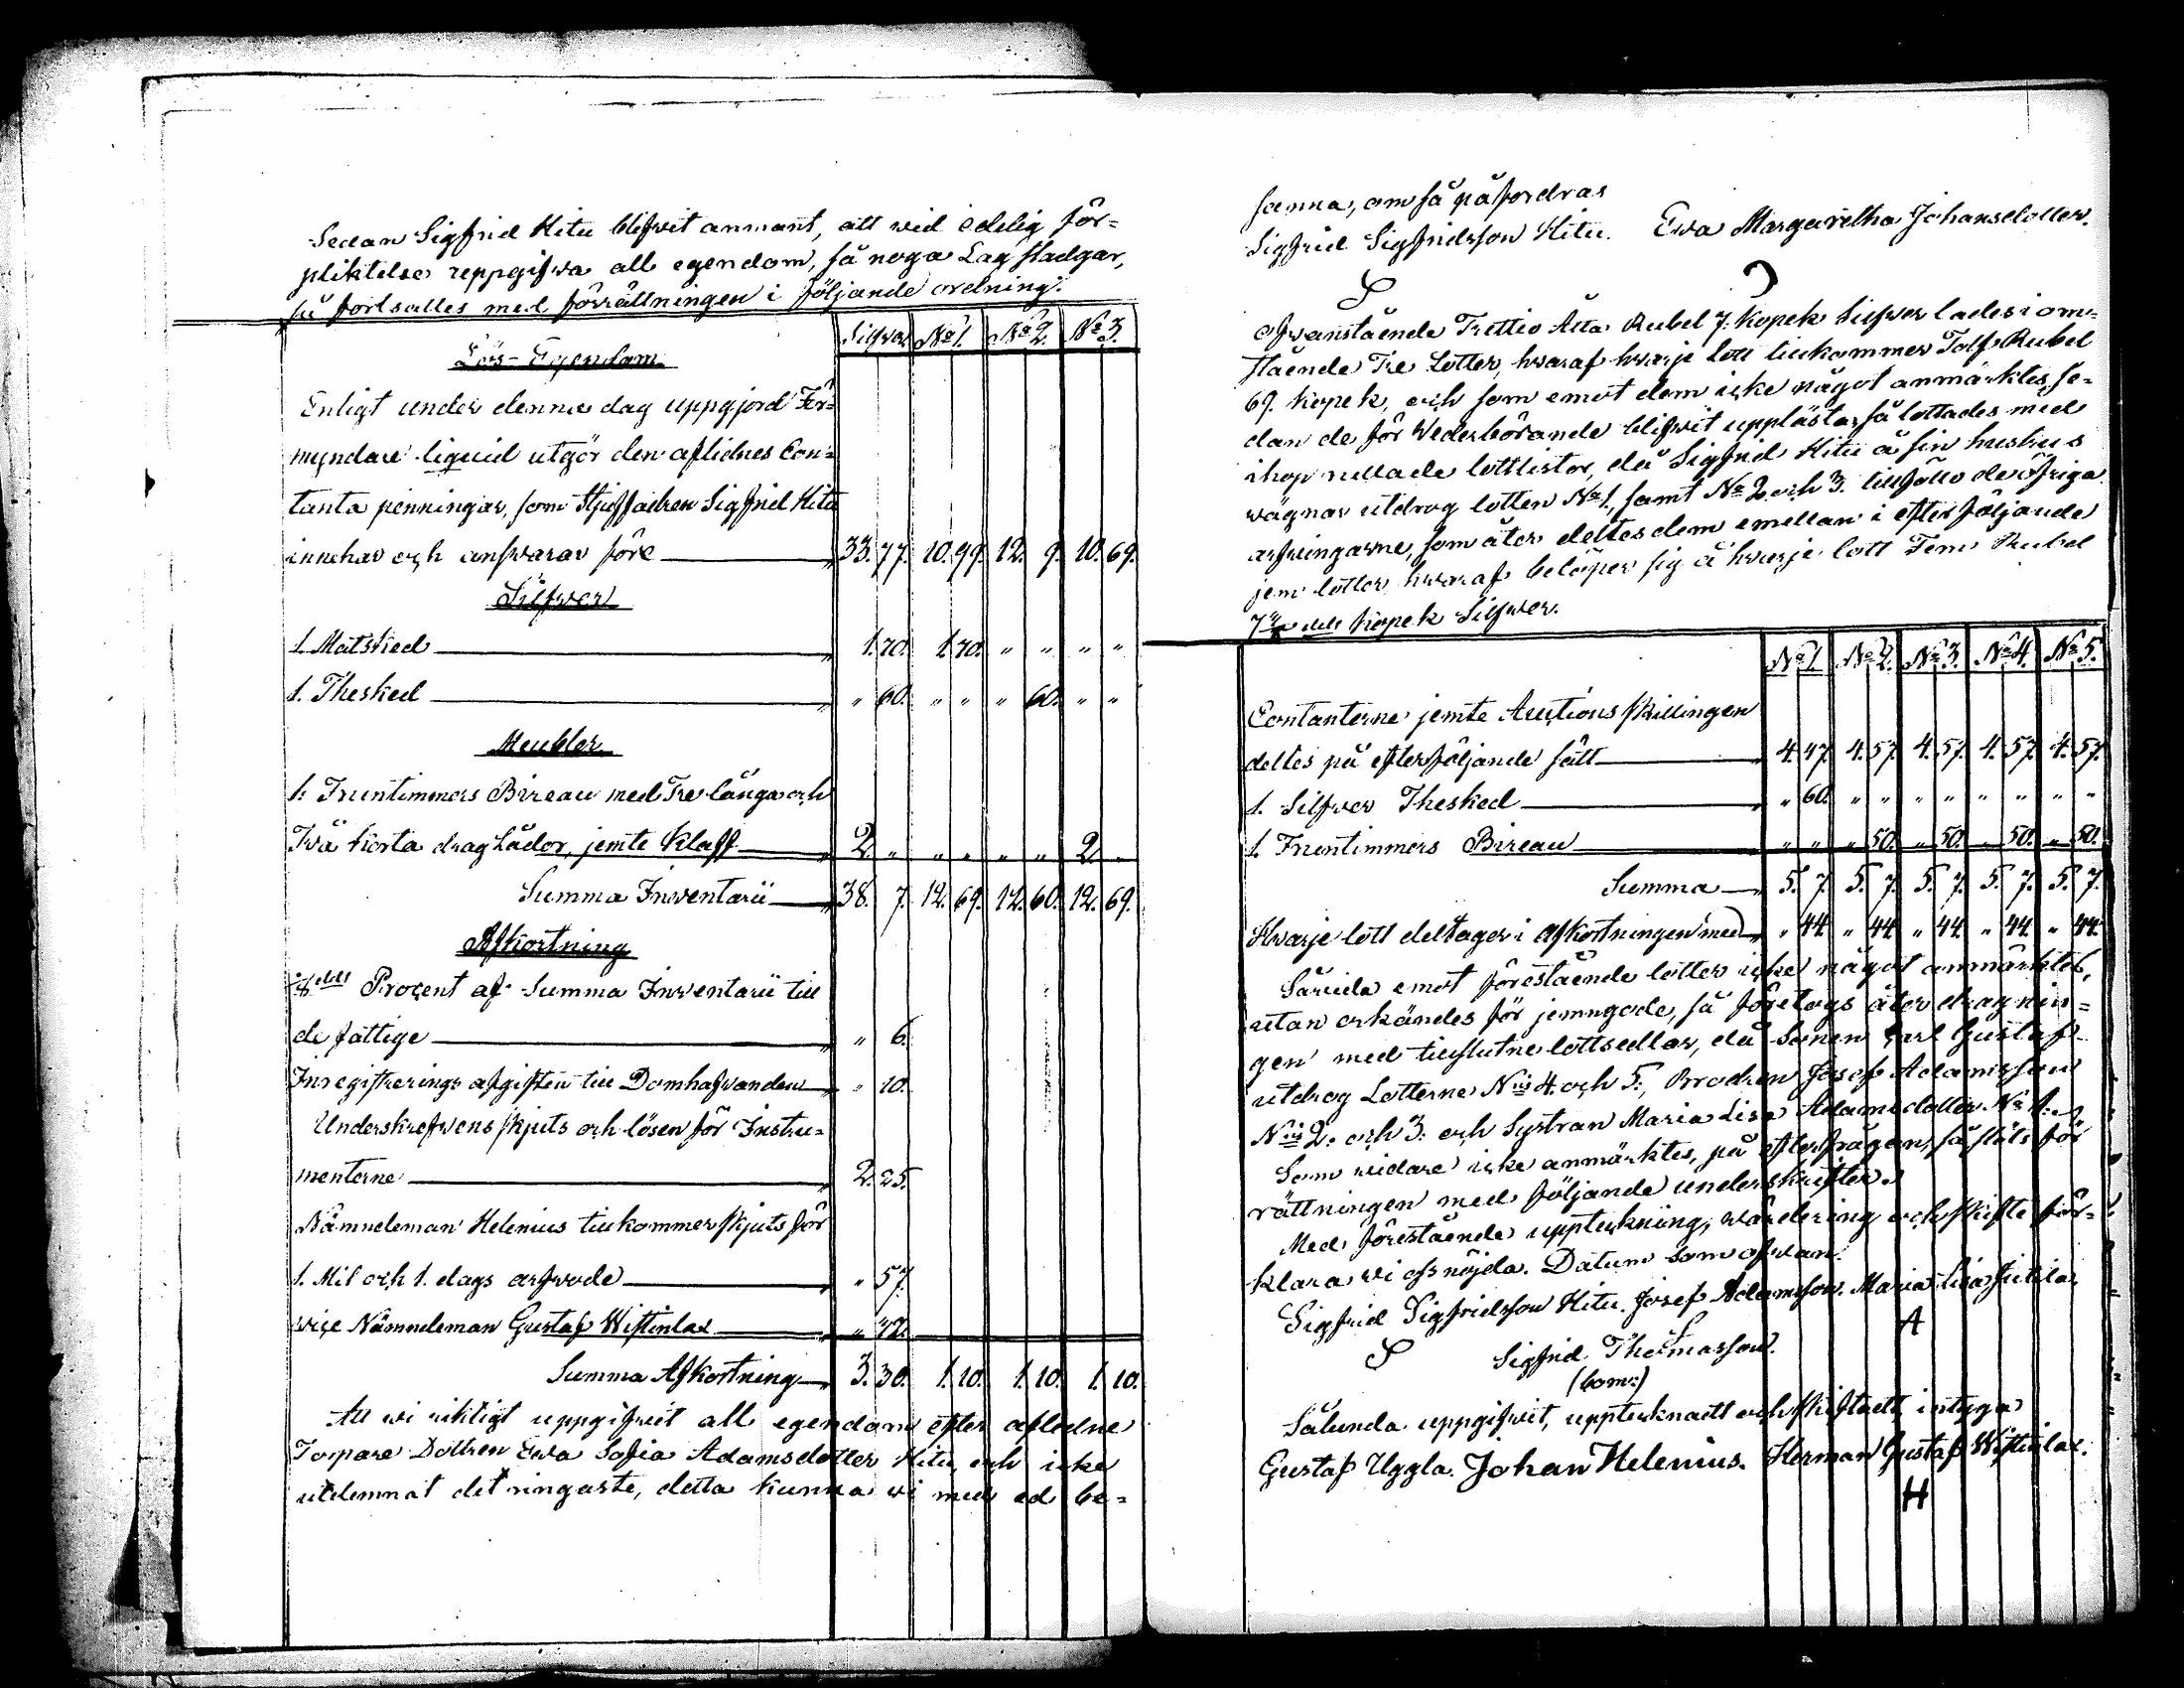 Sedan Sigfrid Hitu blifvit anmant, att wid edelig för=
pliktelse uppgifwa all egendom, så noga Lag stadgar,
så fortsattes med förrättningen i följande ordning.
Silfwer No 1. No 2. No 3.
Lös-Egendom
Enligt under denna dag uppgjord För=
myndare liquid utgör den aflidnes Con=
tanta penningar, som Stjuffadren Sigfrid Hitu
innehar och answarar före 33. 77. 10. 99. 12. 9. 10. 69.
Silfwer
1. Matsked 1. 70. 1. 70. " " " "
1. Thesked " 60. " " " 60. " "
Meubler
1. Fruntimmers Bireau med Tre långa och
Twå korta draglådor, jemte Klaff 2. " " " " " 2. "
Summa Inwentarii 38. 7. 12. 69. 12. 60. 12. 69.
Afkortning
1/8 dels Procent af Summa Inwentarii till
de fattige " 6.
Inregistrerings afgiften till Domhafwanden " 10.
Underskrefwens skjuts och lösen för Instru=
menterne 2. 25.
Nämndeman Helenius tillkommer skjuts för
1. Mil och 1. dags arfwode " 57.
wice Nämndeman Gustaf Wistinlax " 42.
Summa Afkortning 3. 30. 1. 10. 1. 10. 1. 10.
Att wi riktigt uppgifwit all egendom efter aflidne
Torpare Dottren Ewa Sofia Adamsdotter Hitu, och icke
utelemnat det ringaste, detta kunna wi med ed be=
sanna, om så påfordras
Sigfrid Sigfridsson Hitu. Ewa Margaretha Johansdotter.
S
Ofwanstående Trettio Åtta Rubel 7. Kopek Silfwer lades i om=
stående Tre Lotter, hwaraf hwarje lott tillkommer Tolf Rubel
69. Kopek, och som emot dem icke något anmärktes, se=
dan de för Wederbörande blifwit upplästa, så lottades med
ihop rullade lottlistor, då Sigfrid Hitu å sin hustrus
wägnar utdrog lotten No 1., samt No 2. och 3. tillföllo de öfriga
arfwingarne, som åter deltes dem emellan i efterföljande
fem lotter, hwaraf belöper sig å hwarje lott Fem Rubel
7 dels Kopek Silfwer.
No 1 No 2. No 3. No 4. No 5.
Contanterne jemte Auctions skillingen
deltes på efterföljande sätt 4. 47. 4. 57. 4. 57. 4. 57. 4. 57.
1. Silfwer Thesked " 60. " " " " " " " "
1. Fruntimmers Bireau " " " 50. " 50. " 50. " 50.
Summa 5. 7. 5. 7. 5. 7. 5. 7. 5. 7.
Hwarje lott deltager i Afkortningen med " 44. " 44. " 44. " 44. " 44.
Såwida emot förestående lotter icke något anmärktes,
utan erkändes för jemngode, så företogs åter dragnin=
gen med tillslutne lottsedlar, då Sonen Carl Gustaf
utdrog Lotterne Nis 4. och 5., Brodren Josef Adamsson
Nis 2. och 3. och Systran Maria Lisa Adamsdotter No 1.
Som widare icke anmärktes, på efterfrågan, så slöts för
rättningen med följande underskrifter.
Med förestående uppteckning, wärdering och skifte för=
klara wi oss nöjda. Datum som ofwan.
Sigfrid Sigfridsson Hitu. Josef Adamsson. Maria Lisa
S A
Sigfrid Thomasson.
Sålunda uppgifwit, upptecknadt och skiftadt, intyga
Gustaf Uggla. Johan Helenius. Herman Gustaf Wistinlax.
H